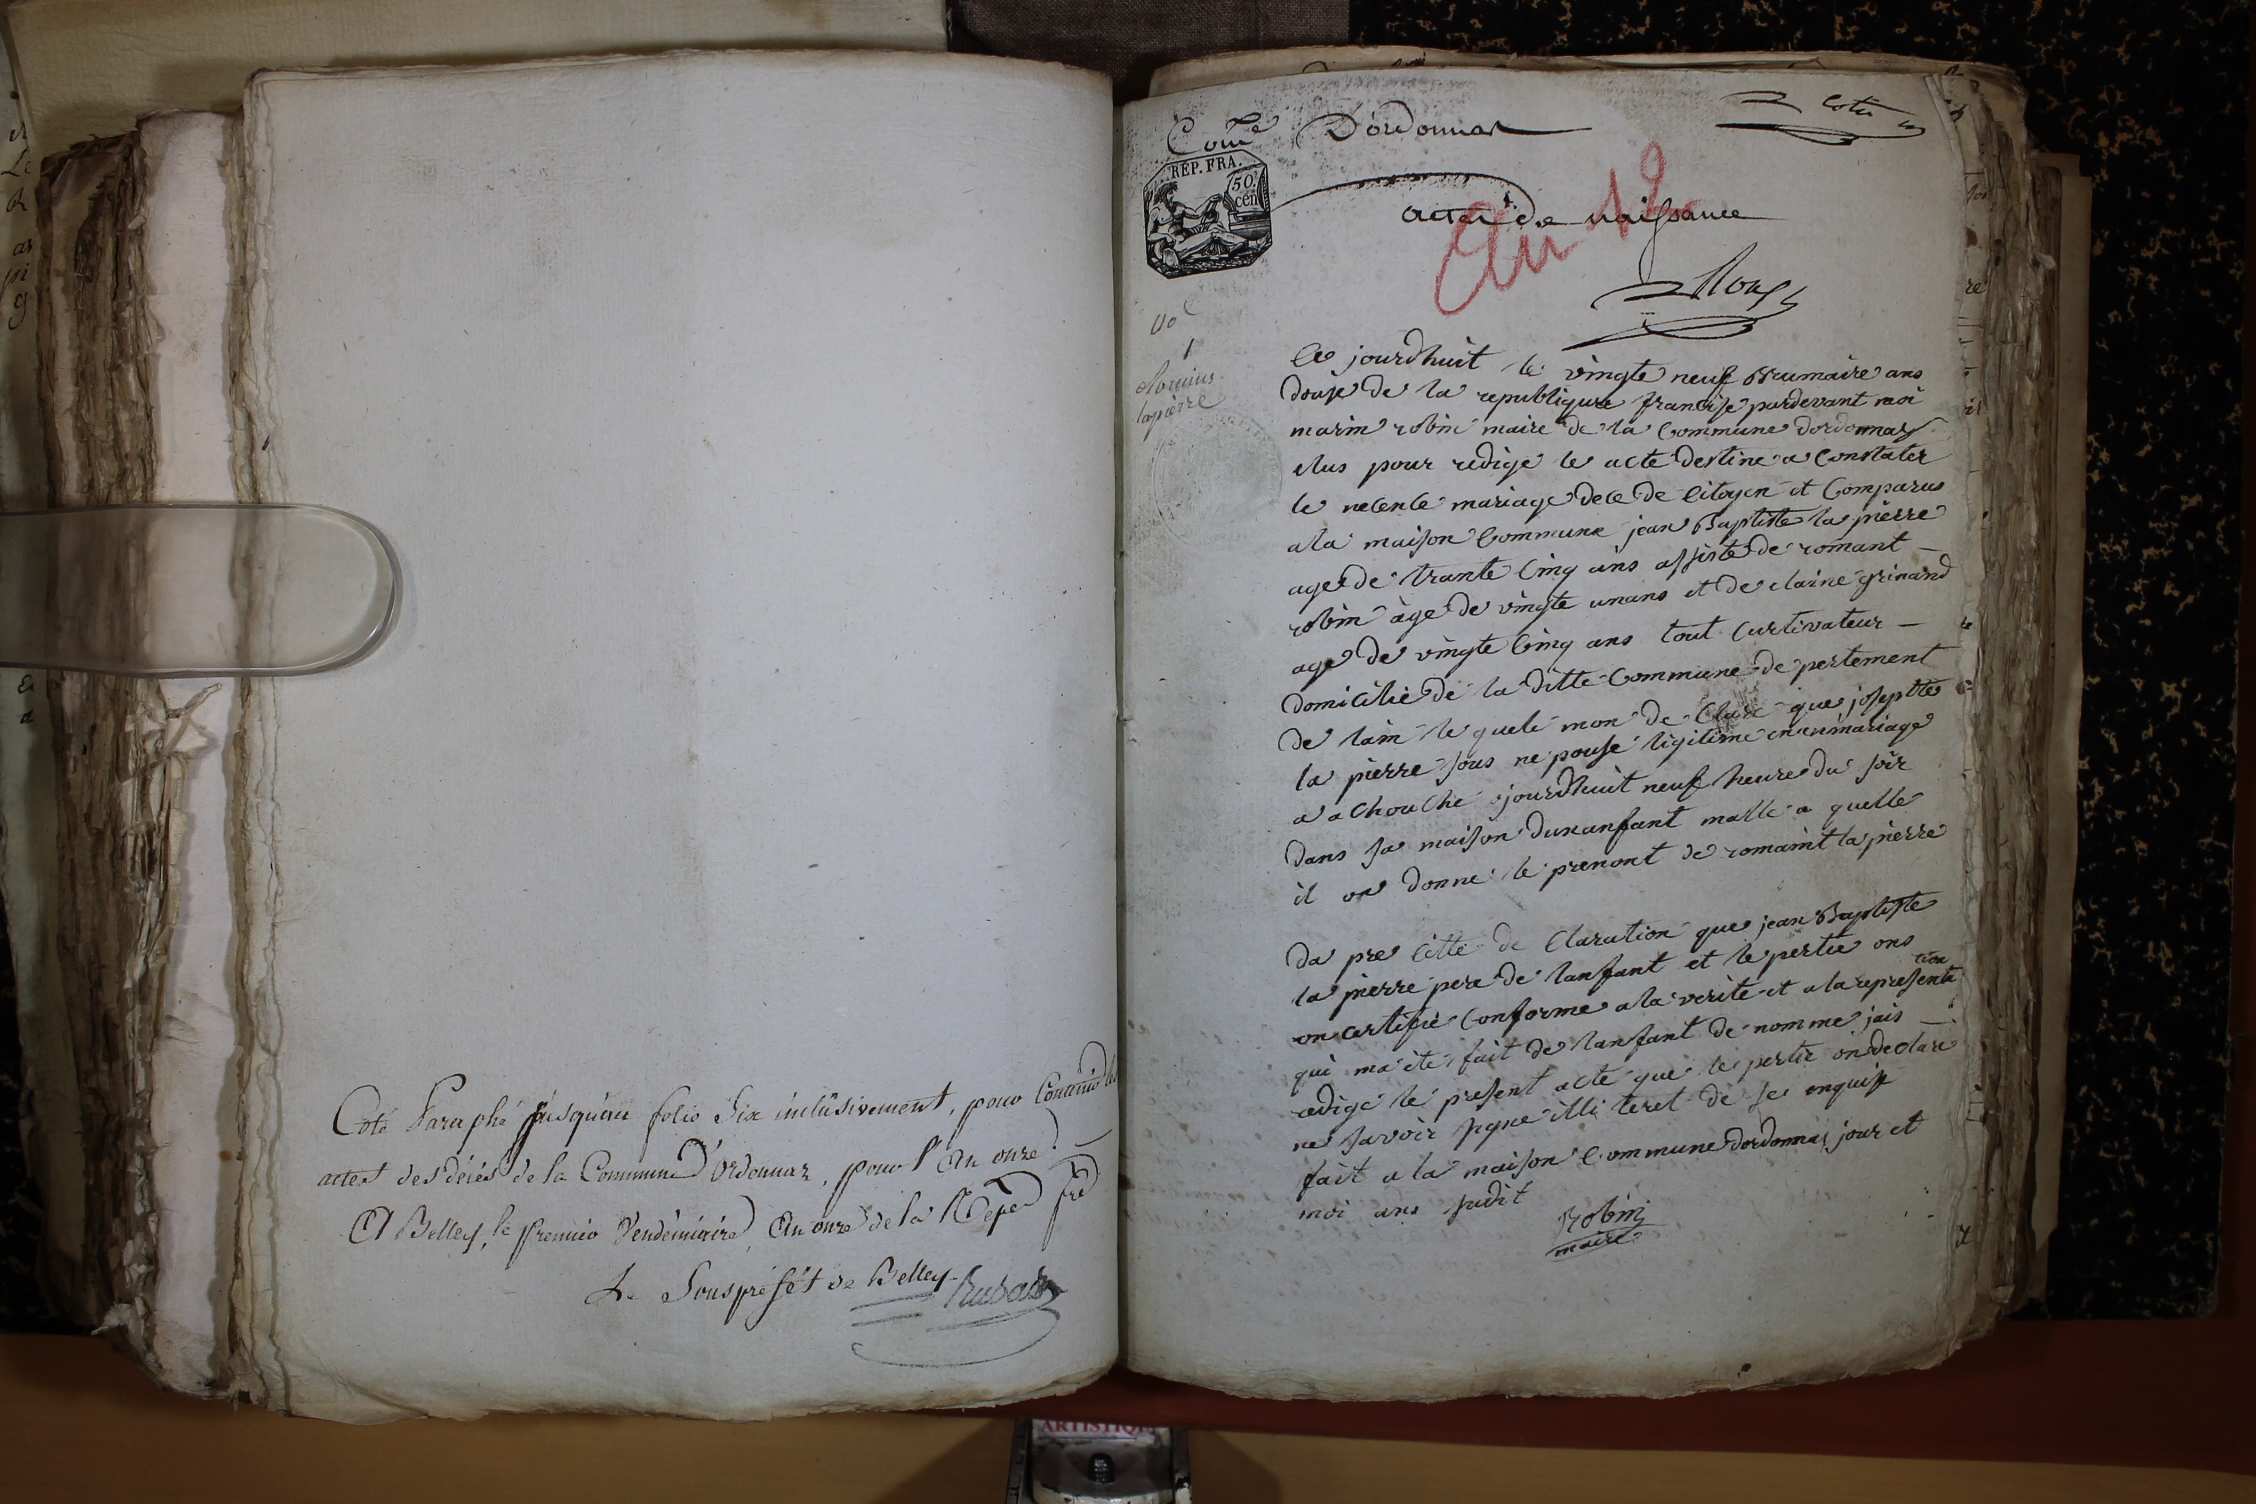 Coté Paraphé jusqu'au folio Six inclusivement, pour
actes des décès de la Commune d'Ordonnaz, pour l'an onze.
A Belley, le premier Vendémiaire, an onze de la Rép
Le Souspréfét de Belley
Com.e D'ordonnas
Cotte
REP. FRA.
50.
cen
actes de naissance
An 12
No
1
Romins
lapierre
Ce jourdhuit le vingte neuf Brumaire ans
douse de la republiqure francise pardevant moi
marin robin maire de la Commune dordonnas
elus pour redige le acte destine a Constater
le necence mariage dece de Citoyen et Comparus
a la maison Commune jean Baptiste la pierre
age de trante Cinq ans assiste de romant
robin àge de vingte un ans et de claine grinand
age de vingte Cinq ans tout Curtivateur
domicilie de la ditte Commune de pertement
de lain le quele mon de Clare que josephte
la pierre sous ne pouse ligitime en en mariage
a a chouche ojourdhuit neuf heure du soir
dans sa maison dun anfant malle a quelle
il on donne le prenont de romaint la pierre
da pre Citte de Claration que jean Baptiste
la pierre pere de lanfant et le pertie ons
on certifie Conforme a la verite et a la represente
tion
qui ma ete fait de lanfant de nomme jais
redige le present acte que le pertie on declare
ne savoir signe illi teret de se enquise
fait a la maison Commune dordonnas jour et
moi ans sudit
Robin
maire
ARTISTIQ